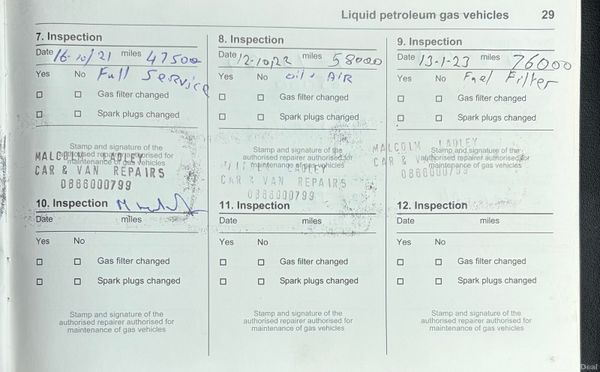 Liquid petroleum gas vehicles 29
7. Inspection
Date 16-10/21 miles 47500
Yes No Full Service
Gas filter changed
Spark plugs changed
Stamp and signature of the
authorised repairer authorised for
maintenance of gas vehicles
MALCOLM LADLEY
CAR & VAN REPAIRS
0866000799
8. Inspection
Date 12-10/22 miles 58000
Yes No oil + AIR
Gas filter changed
Spark plugs changed
Stamp and signature of the
authorised repairer authorised for
maintenance of gas vehicles
LADLEY
CAR & VAN REPAIRS
0866000799
9. Inspection
Date 13-1-23 miles 76000
Yes No Fuel Filter
Gas filter changed
Spark plugs changed
Stamp and signature of the
authorised repairer authorised for
maintenance of gas vehicles
MALCOLM LADLEY
CAR & VAN
0866000799
10. Inspection
Date miles
Yes No
Gas filter changed
Spark plugs changed
Stamp and signature of the
authorised repairer authorised for
maintenance of gas vehicles
11. Inspection
Date miles
Yes No
Gas filter changed
Spark plugs changed
Stamp and signature of the
authorised repairer authorised for
maintenance of gas vehicles
12. Inspection
Date miles
Yes No
Gas filter changed
Spark plugs changed
Stamp and signature of the
authorised repairer authorised for
maintenance of gas vehicles